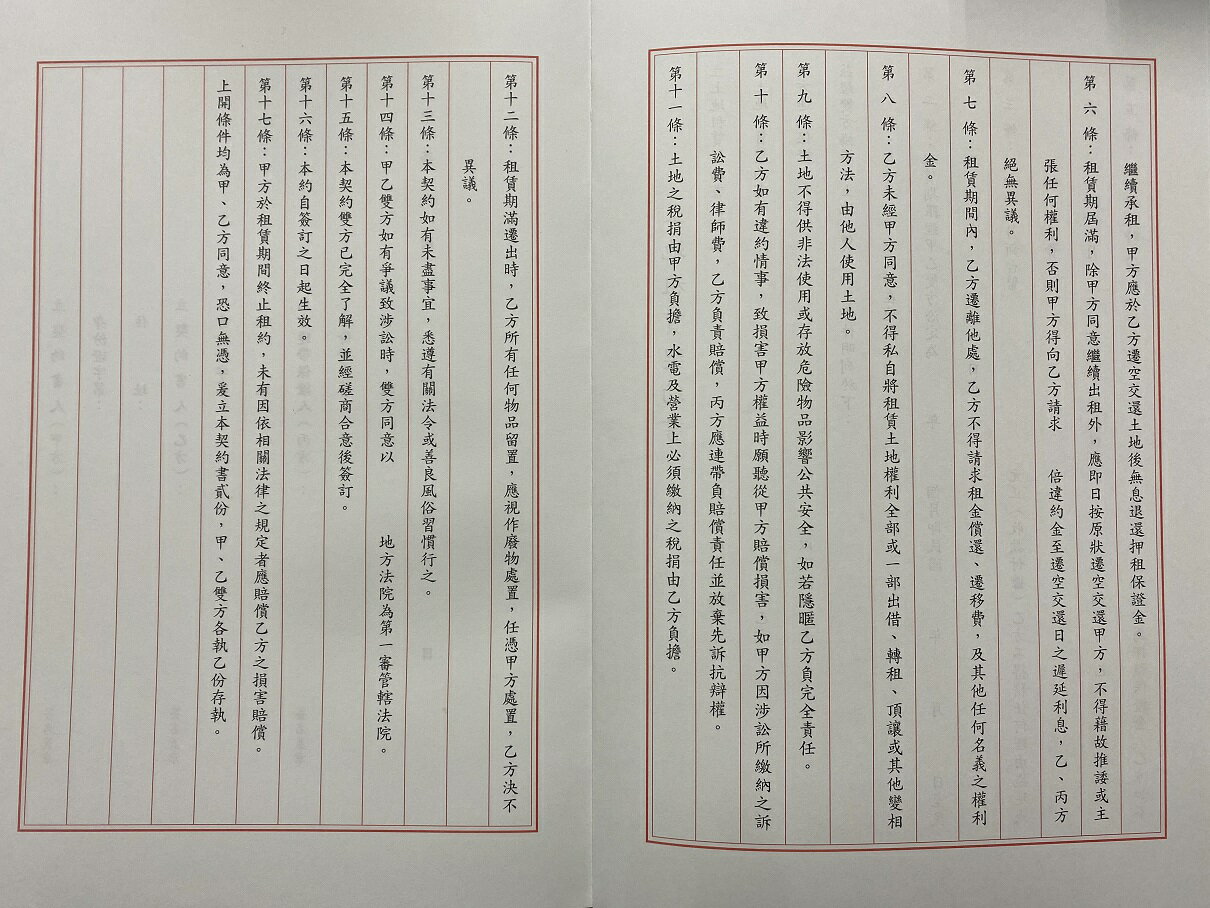 繼續承租，甲方應於乙方遷空交還土地後無息退還押租保證金。
第六條：租賃期屆滿，除甲方同意繼續出租外，應即日按原狀遷空交還甲方，不得藉故推諉或主
張任何權利，否則甲方得向乙方請求　　倍違約金至遷空交還日之遲延利息，乙、丙方
絕無異議。
第七條：租賃期間內，乙方遷離他處，乙方不得請求租金償還、遷移費，及其他任何名義之權利
金。
第八條：乙方未經甲方同意，不得私自將租賃土地權利全部或一部出借、轉租、頂讓或其他變相
方法，由他人使用土地。
第九條：土地不得供非法使用或存放危險物品影響公共安全，如若隱匿乙方負完全責任。
第十條：乙方如有違約情事，致損害甲方權益時願聽從甲方賠償損害，如甲方因涉訟所繳納之訴
訟費、律師費，乙方負責賠償，丙方應連帶負賠償責任並放棄先訴抗辯權。
第十一條：土地之稅捐由甲方負擔，水電及營業上必須繳納之稅捐由乙方負擔。
第十二條：租賃期滿遷出時，乙方所有任何物品留置，應視作廢物處置，任憑甲方處置，乙方決不
異議。
第十三條：本契約如有未盡事宜，悉遵有關法令或善良風俗習慣行之。
第十四條：甲乙雙方如有爭議致涉訟時，雙方同意以　　地方法院為第一審管轄法院。
第十五條：本契約雙方已完全了解，並經磋商合意後簽訂。
第十六條：本約自簽訂之日起生效。
第十七條：甲方於租賃期間終止租約，未有因依相關法律之規定者應賠償乙方之損害賠償。
上開條件均為甲、乙方同意，恐口無憑，爰立本契約書貳份，甲、乙雙方各執乙份存執。